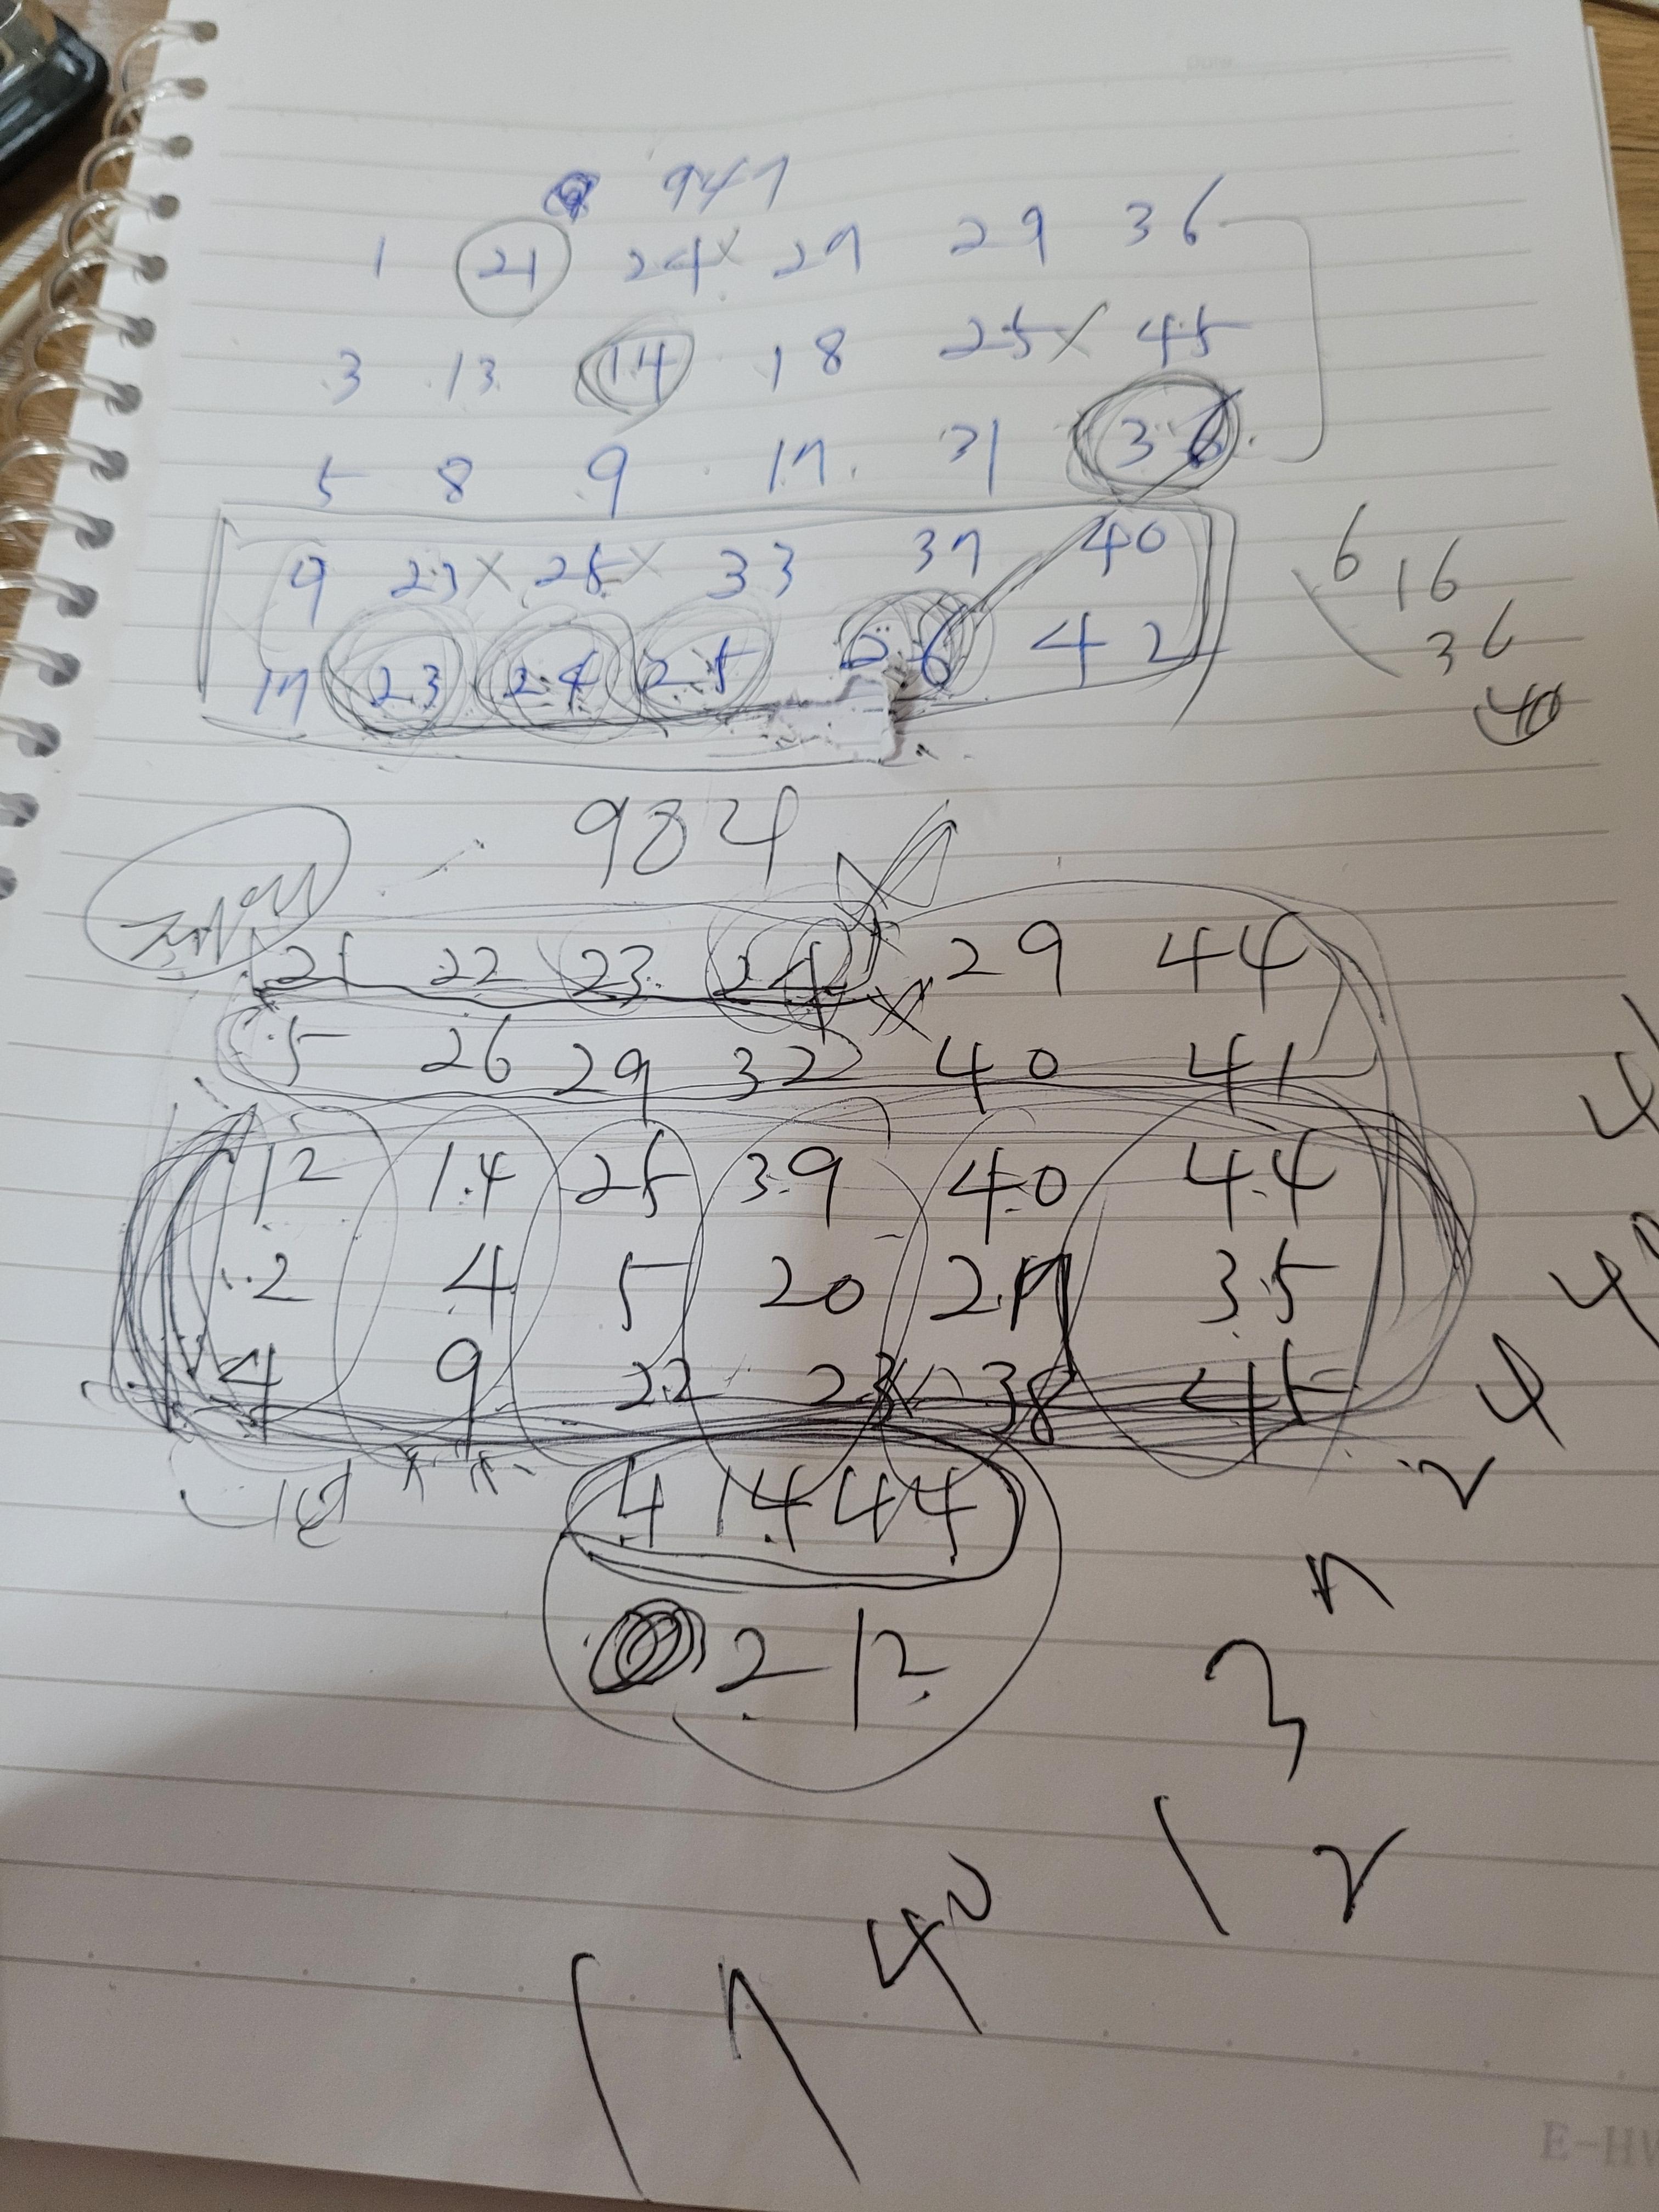 947
1 21 24 x 29 29 36
3 13 14 18 25 x 45
5 8 9 17 31 36
9 23 x 25 x 33 37 40
17 23 24 25 36 42
6
16
36
40
984
21 22 23 24 29 44
5 26 29 32 40 41
12 14 25 39 40 44
2 4 5 20 27 35
4 9 22 23 x 38 45
4 14 44
2 12
4
2
7
3
12
40
17
E-HW